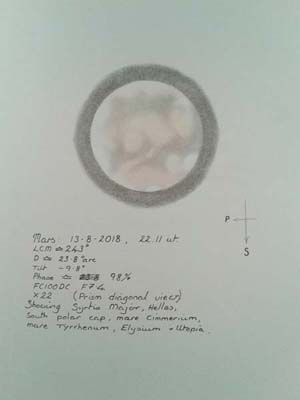 P
S
Mars: 13-8-2018, 22.11 ut
LCM ≈ 243°
D ≈ 23.8" arc
Tilt -9.8°
Phase ≈ 98%
FC100DC F7.4
x 22 (Prism diagonal view)
Showing Syrtis Major, Hellas,
South polar cap, mare Cimmerium,
mare Tyrrhenum, Elysium + Utopia.